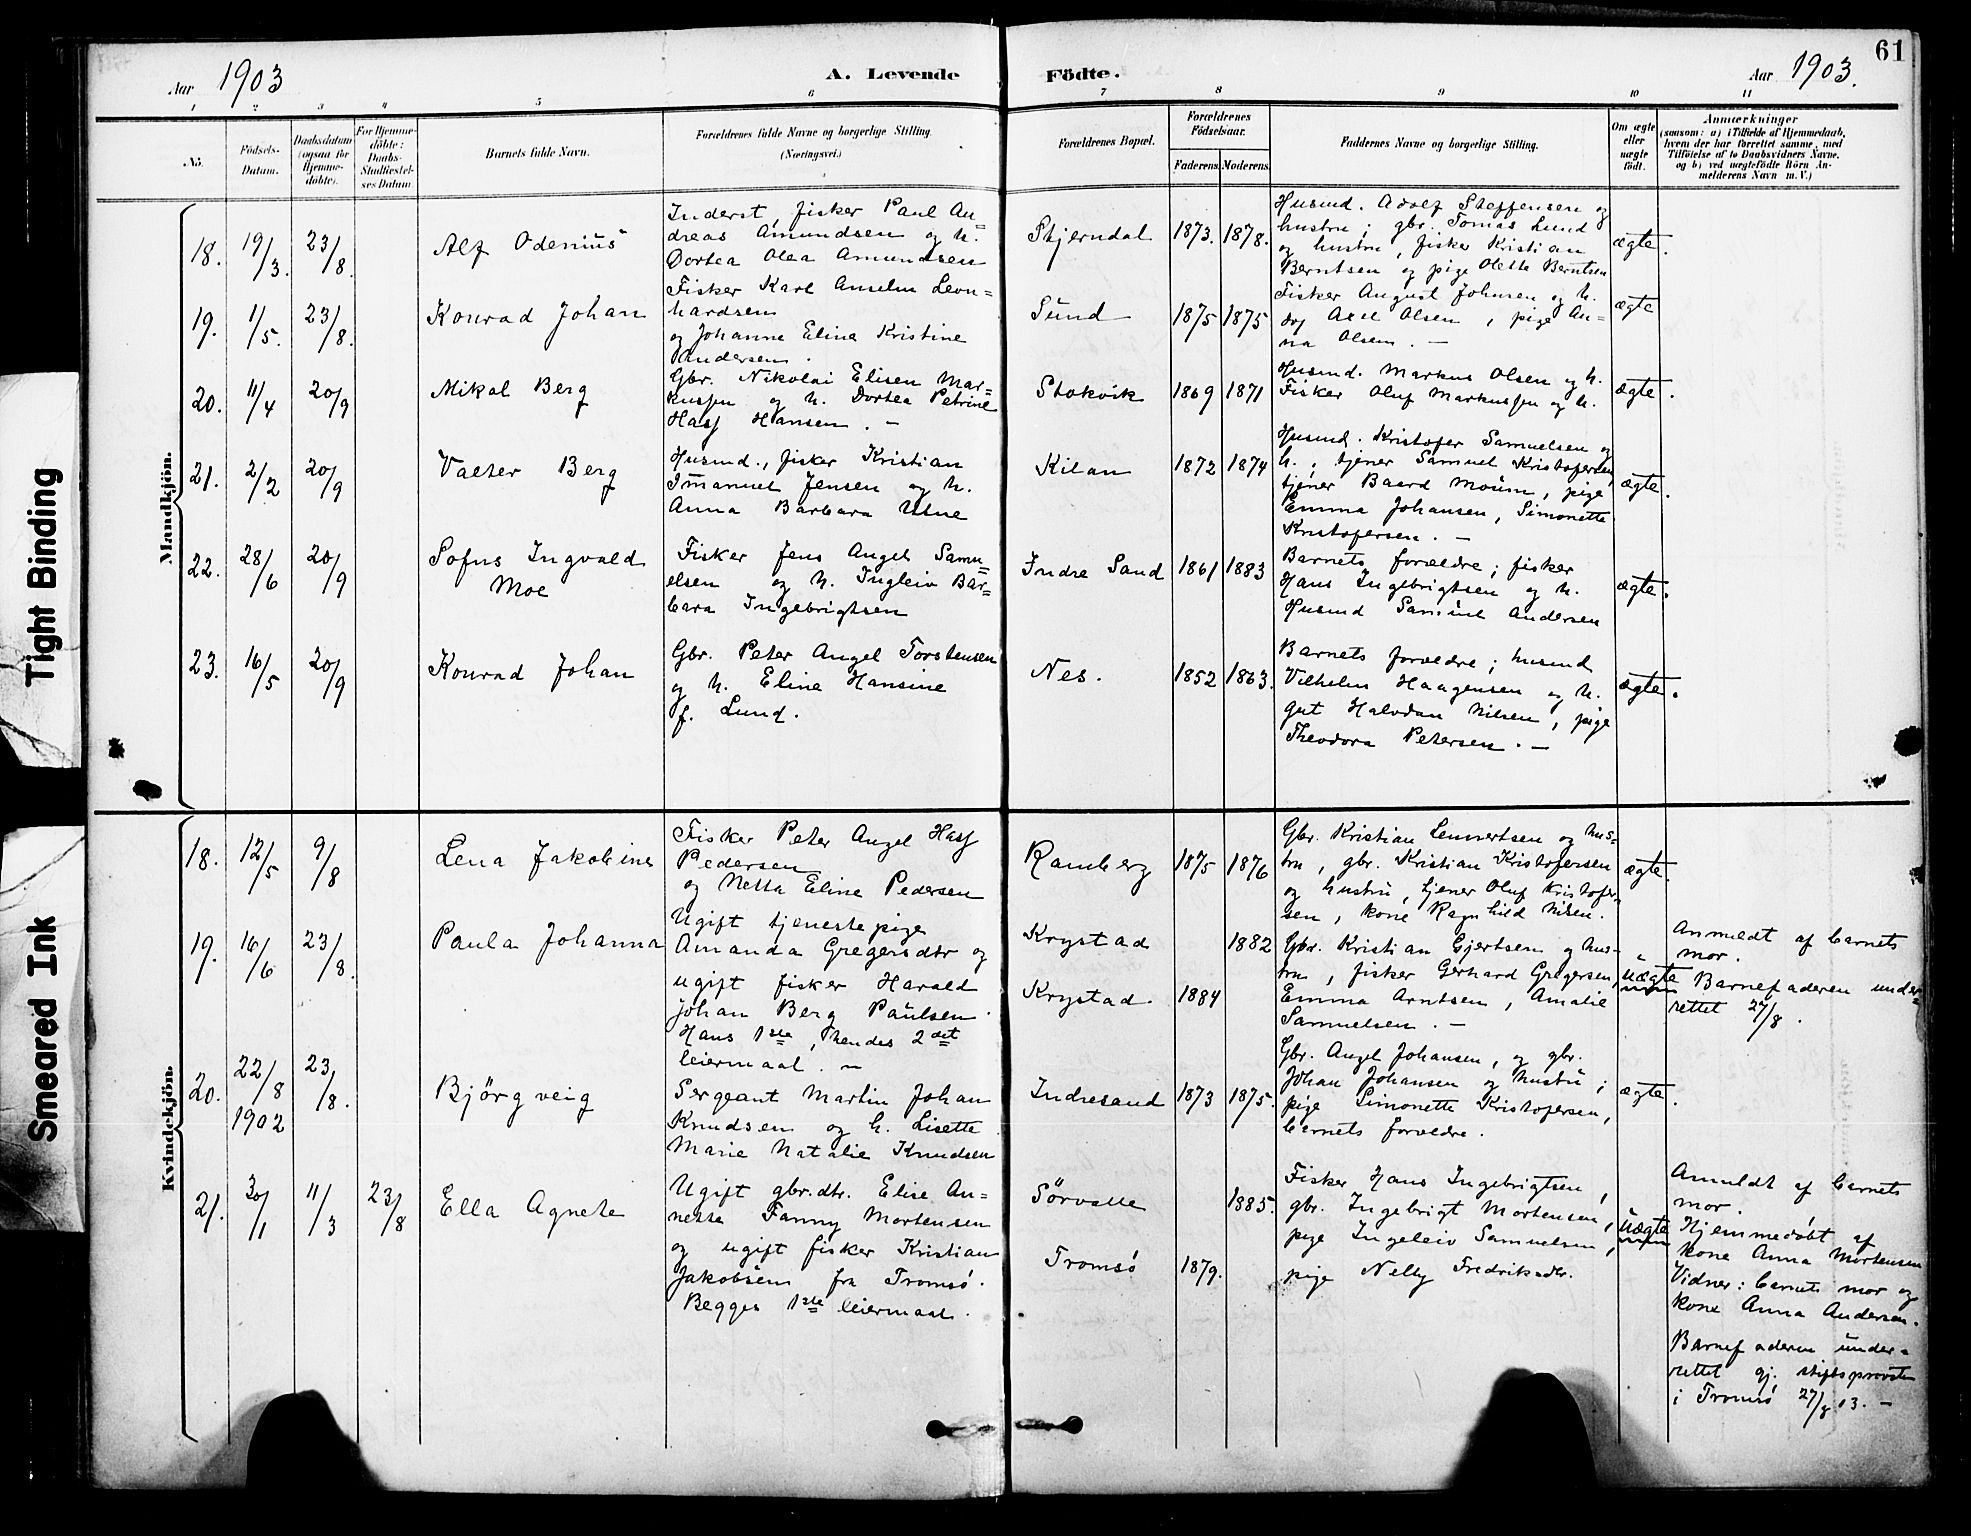 61
Aar 1903
A. Levende Födte.
Aar 1903.
1 2 3 4 5 6 7 8 9 10 11
No.
Födsels-Datum.
Daabsdatum (ogsaa for Hjemme-döbte).
For Hjemme-döbte: Daabs-Stadfæstel-ses Datum
Barnets fulde Navn.
Forældrenes fulde Navne og borgerlige Stilling. (Næringsvei.)
Forældrenes Bopæl.
Forældrenes Födselsaar.
Faderens
Moderens
Faddernes Navne og borgerlige Stilling.
Om ægte eller uægte födt.
Anmærkninger
(saasom: a) i Tilfælde af Hjemmedaab,
hvem der har forrettet samme, med
Tilföielse af to Daabsvidners Navne,
og b) ved uægtefödte Börn An-
melderens Navn m. V.)
Mandkjön.
18. 19/3. 23/8. Alf Odenius
Inderst, fisker Paul An=
dreas Amundsen og h.
Dortea Olea Amundsen
Stjerndal 1873. 1878.
Husmd. Adolf Steffensen og
hustru; gbr. Tomas Lund
og hustru, fisker Kristian
Berntsen og pige Olette Berntsen
ægte.
19. 1/5. 23/8. Konrad Johan
Fisker Karl Anselm Leon=
hardsen
og Johanne Elina Kristine
Andersen.
Sund 1875 1875
Fisker August Johnsen og h.
Axel Olsen, pige An=
na Olsen. —
ægte
20. 11/4 20/9 Mikal Berg
Gbr. Nikolai Elisen Mar=
kussen og h. Dortea Petrine
Hass Hansen. —
Stokvik 1869 1871
Husmd. Markus Olsen og h.
Fisker Oluf Markussen og h.
ægte.
21. 2/2 20/9 Valter Berg
Husmd., fisker Kristian
Imanuel Jensen og h.
Anna Barbara Utne
Kilan 1872 1874
Husmd. Kristofer Samuelsen og
h.; tjener Samuel Kristofersen,
tjener Baard Moum, pige
Emma Johansen, Simonette
Kristofersen. —
ægte.
22. 28/6 20/9 Sofus Ingvald
Moe
Fisker Jens Angel Samu=
elsen og h. Ingleiv Bar=
bara Ingebrigtsen
Indre Sand 1861 1883
Barnets forældre; fisker
Hans Ingebrigtsen og h.
Husmd Samuel Andersen
ægte.
23. 16/5 20/9 Konrad Johan
Gbr. Peter Angel Torstensen
og h. Eline Hansine
f. Lund.
Nes. 1852 1863.
Barnets forældre; husmd
Vilhelm Haagensen og h.
gut Halvdan Nilsen, pige
Theodora Petersen. —
ægte.
Kvindekjön.
18. 12/5 9/8 Lena Jakobine
Fisker Peter Angel Hass
Pedersen
og Netta Eline Pedersen
Ramberg 1875 1876
Gbr. Kristian Lennertsen og hus=
tru, gbr. Kristian Kristofersen
og hustru, tjener Oluf Kristofer=
sen, kone Ragnhild Nilsen.
ægte.
19. 16/6 23/8. Paula Johanna
Ugift tjenestepige
Amanda Gregersdtr og
ugift fisker Harald
Johan Berg Paulsen.
Hans 1ste, hendes 2det
leiermaal. —
Krystad 1882
Krystad. 1884
Gbr. Kristian Gjertsen og hus=
tru, fisker Gerhard Gregersen,
Emma Arntsen, Amalie
Samuelsen. —
uægte
Anmeldt af barnets
mor.
Barnefaderen under=
rettet 27/8.
20. 22/8 1902 23/8. Björgveig
Sergeant Martin Johan
Knudsen og h. Lisette
Marie Natalie Knudsen
Indresand 1873 1875.
Gbr. Angel Johansen, og gbr.
Johan Johansen og hustru;
pige Simonette Kristofersen,
barnets forældre.
ægte.
21. 30/1 11/3 23/8 Ella Agnete
Ugift gbr.dtr. Elise An=
nette Fanny Mortensen
og ugift fisker Kristian
Jakobsen fra Tromsö.
Begges 1ste leiermaal.
Sörvalle 1885.
Tromsö 1879.
Fisker Hans Ingebrigtsen,
gbr. Ingebrigt Mortensen,
pige Ingeleiv Samuelsen,
pige Nelly Fredriksdtr.
uægte
Anmeldt af barnets
mor.
Hjemmedöbt af
kone Anna Mortensen
Vidner: barnets mor og
kone Anna Andersen.
Barnefaderen under=
rettet gj. stiftsprovsten
i Tromsö 27/8 03. —
Tight Binding
Smeared Ink